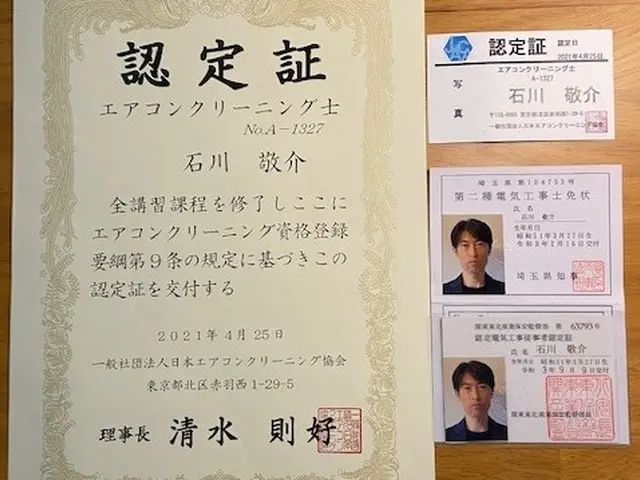 認定証
エアコンクリーニング士
No.A-1327
石川 敬介
全講習課程を修了しここに
エアコンクリーニング資格登録
要綱第9条の規定に基づきこの
認定証を交付する
2021年4月25日
一般社団法人日本エアコンクリーニング協会
東京都北区赤羽西1-29-5
理事長 清水 則好
認定証 認定日
2021年4月25日
エアコンクリーニング士
A-1327
写
真
石川 敬介
一般社団法人日本エアコンクリーニング協会
埼玉県第104753号
第二種電気工事士免状
氏名
石川 敬介
生年月日
昭和51年3月27日生
令和3年2月16日交付
埼玉県知事
関東東北産業保安監督部 第 63793号
認定電気工事従事者認定証
氏名 石川 敬介
生年月日 昭和51年3月27日生
令和 3年9月9日交付
関東東北産業保安監督部長